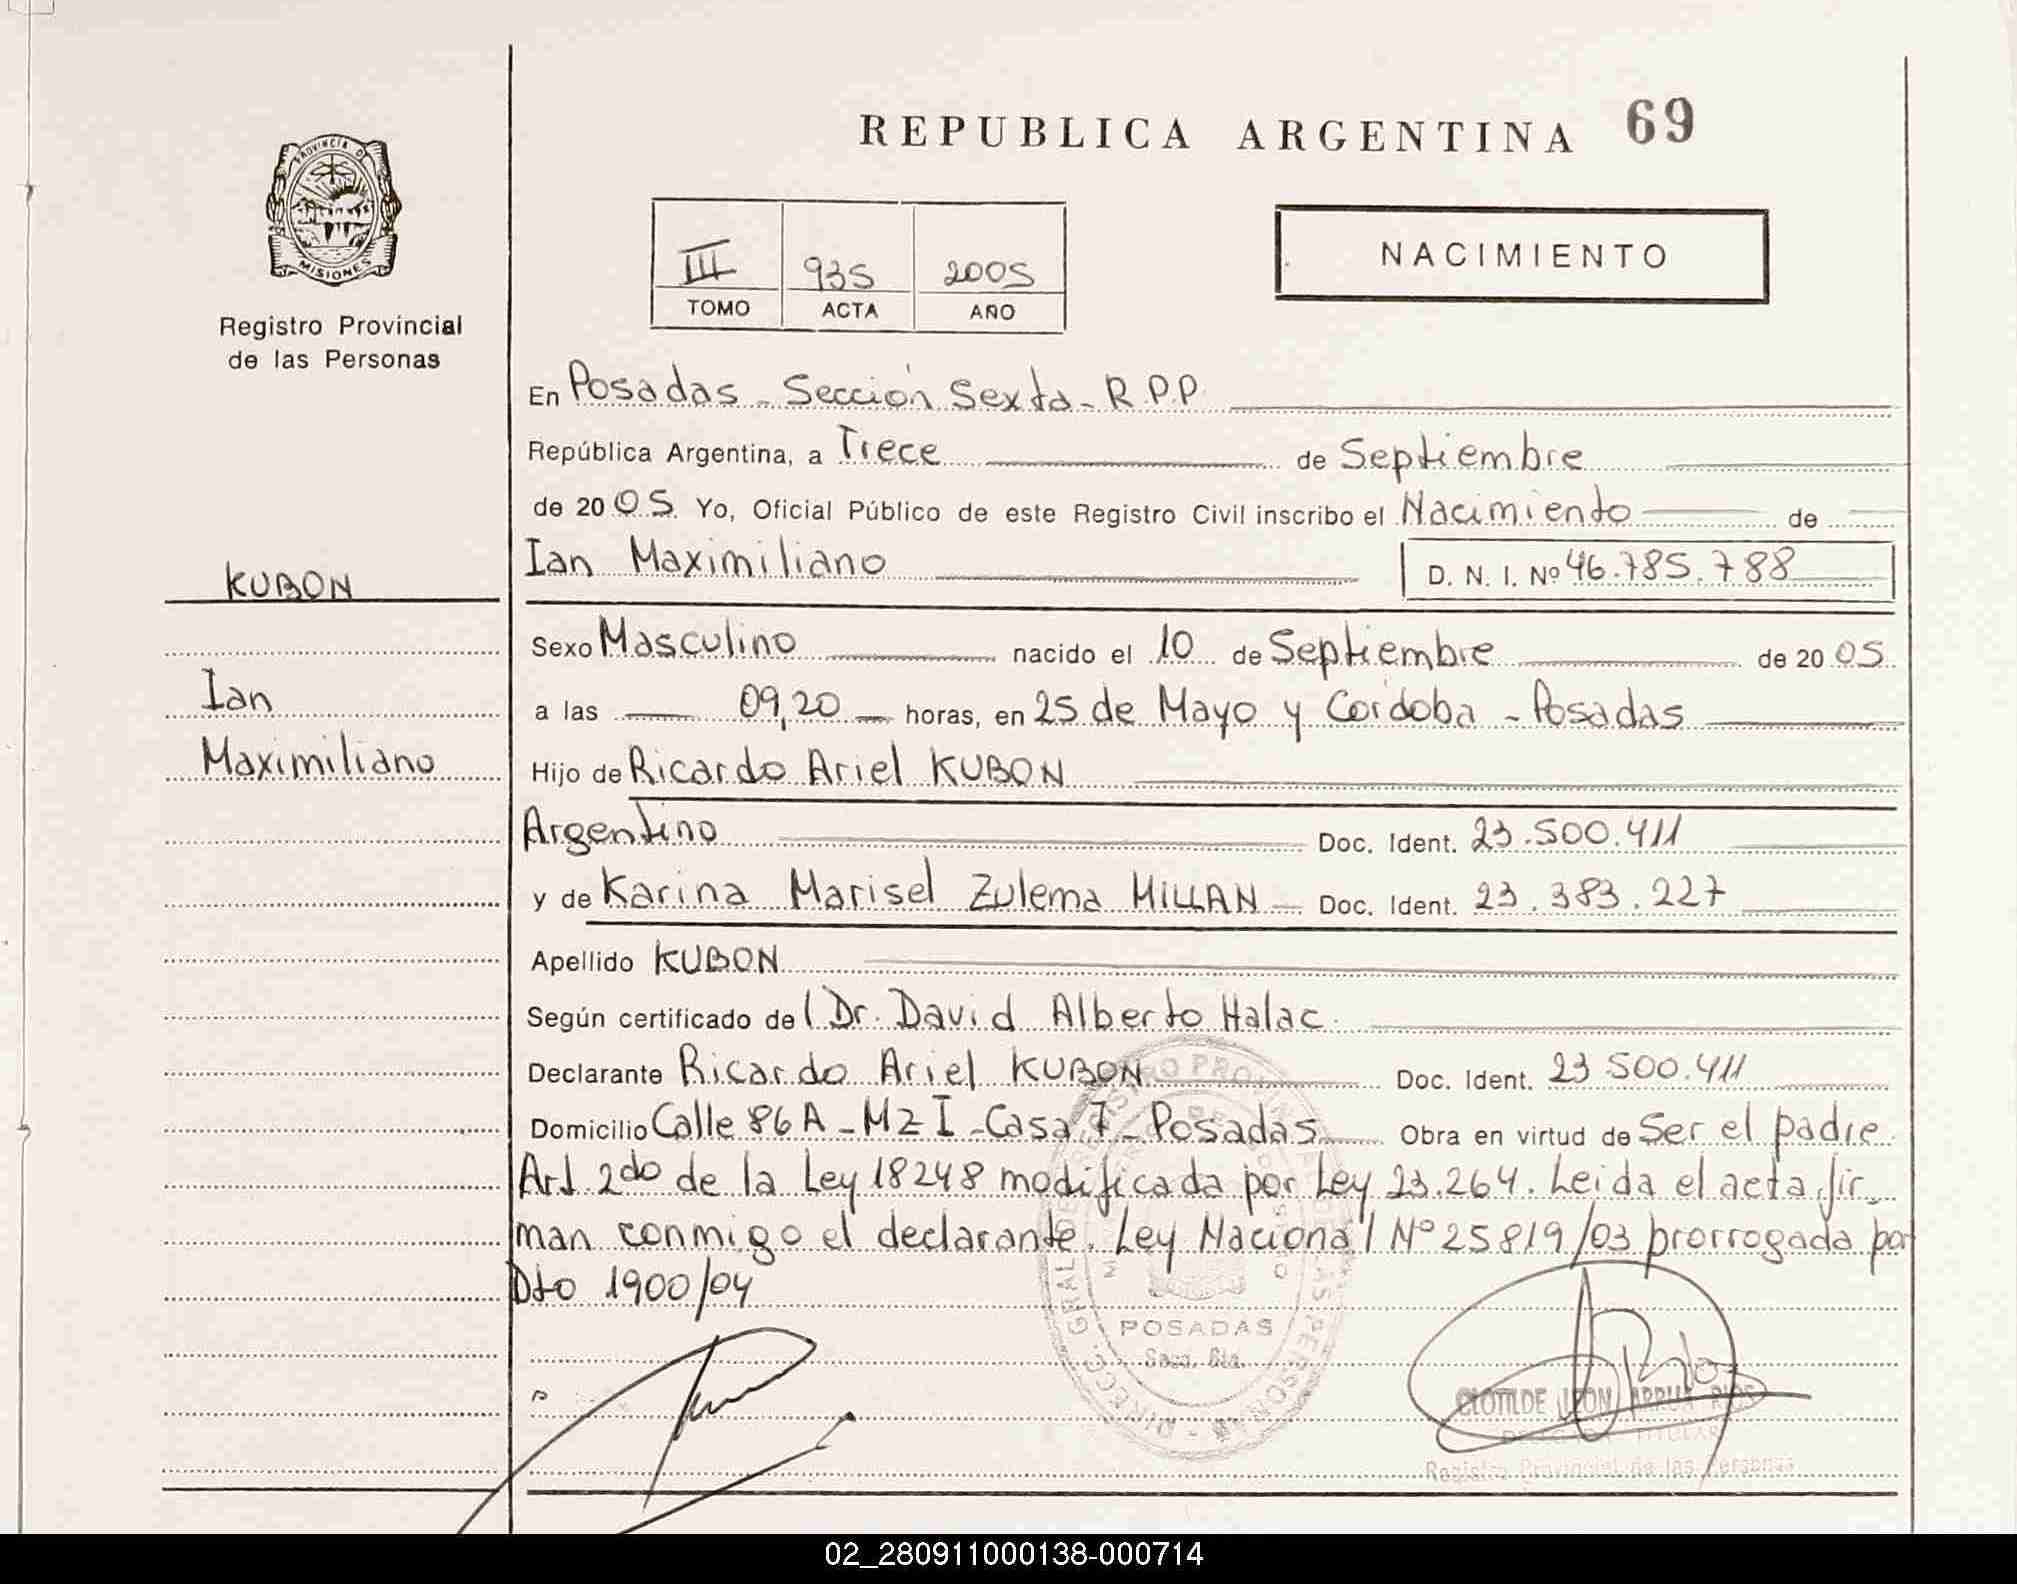 REPUBLICA ARGENTINA 69
PROVINCIA D
MISIONES
Registro Provincial
de las Personas
III 935 2005
TOMO ACTA AÑO
NACIMIENTO
En Posadas - Sección Sexta - R.P.P.
República Argentina, a Trece de Septiembre
de 2005 Yo, Oficial Público de este Registro Civil inscribo el Nacimiento de
Ian Maximiliano D. N. I. Nº 46.785.788
KUBON
Ian
Maximiliano
Sexo Masculino nacido el 10 de Septiembre de 2005
a las 09,20 horas, en 25 de Mayo y Córdoba - Posadas
Hijo de Ricardo Ariel KUBON
Argentino Doc. Ident. 23.500.411
y de Karina Marisel Zulema MILLAN Doc. Ident. 23.383.227
Apellido KUBON
Según certificado del Dr. David Alberto Halac.
Declarante Ricardo Ariel KUBON Doc. Ident. 23 500.411
Domicilio Calle 86 A - Mz I - Casa 7 - Posadas Obra en virtud de Ser el padre
Art 2do de la Ley 18248 modificada por Ley 23.264. Leida el acta, fir_
man conmigo el declarante. Ley Nacional Nº 25819/03 prorrogada por
Dto 1900/04
POSADAS
Secc. 6ta.
CLOTILDE LEON ARRUA RIOS
DELEGADA TITULAR
Registro Provincial de las Personas
02_280911000138-000714